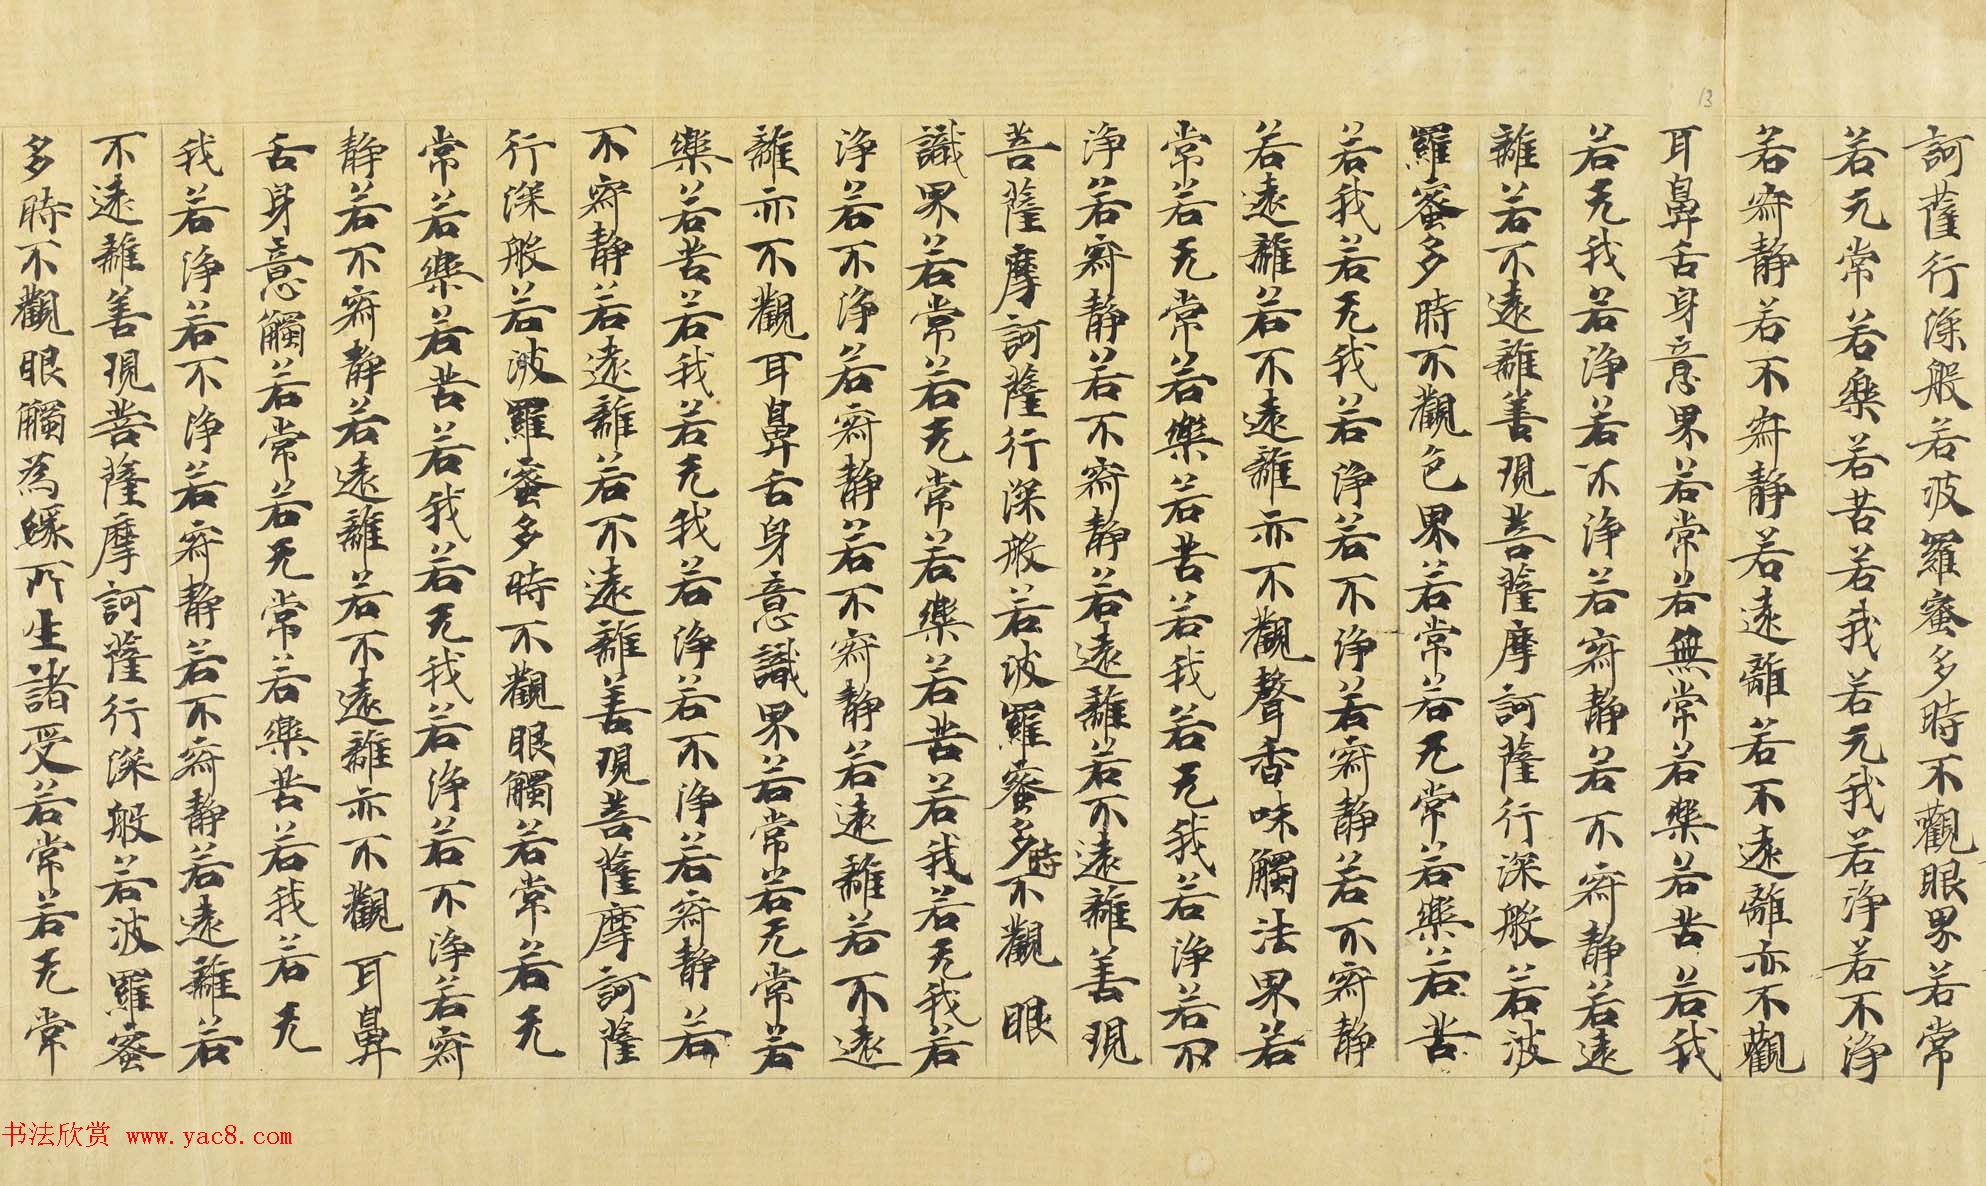 訶薩行深般若波羅蜜多時不觀眼界若常
若无常若樂若苦若我若无我若淨若不淨
若寂静若不寂静若遠離若不遠離亦不觀
耳鼻舌身意界若常若無常若樂若苦若我
若无我若淨若不淨若寂静若不寂静若遠
離若不遠離善現菩薩摩訶薩行深般若波
羅蜜多時不觀色界若常若无常若樂若苦
若我若无我若淨若不淨若寂静若不寂静
若遠離若不遠離亦不觀聲香味觸法界若
常若无常若樂若苦若我若无我若淨若不
淨若寂静若不寂静若遠離若不遠離善現
菩薩摩訶薩行深般若波羅蜜多時不觀眼
識界若常若无常若樂若苦若我若无我若
淨若不淨若寂静若不寂静若遠離若不遠
離亦不觀耳鼻舌身意識界若常若无常若
樂若苦若我若无我若淨若不淨若寂静若
不寂静若遠離若不遠離善現菩薩摩訶薩
行深般若波羅蜜多時不觀眼觸若常若无
常若樂若苦若我若无我若淨若不淨若寂
静若不寂静若遠離若不遠離亦不觀耳鼻
舌身意觸若常若无常若樂苦若我若无
我若淨若不淨若寂静若不寂静若遠離若
不遠離善現菩薩摩訶薩行深般若波羅蜜
多時不觀眼觸為緣所生諸受若常若无常
13
书法欣赏 www.yac8.com